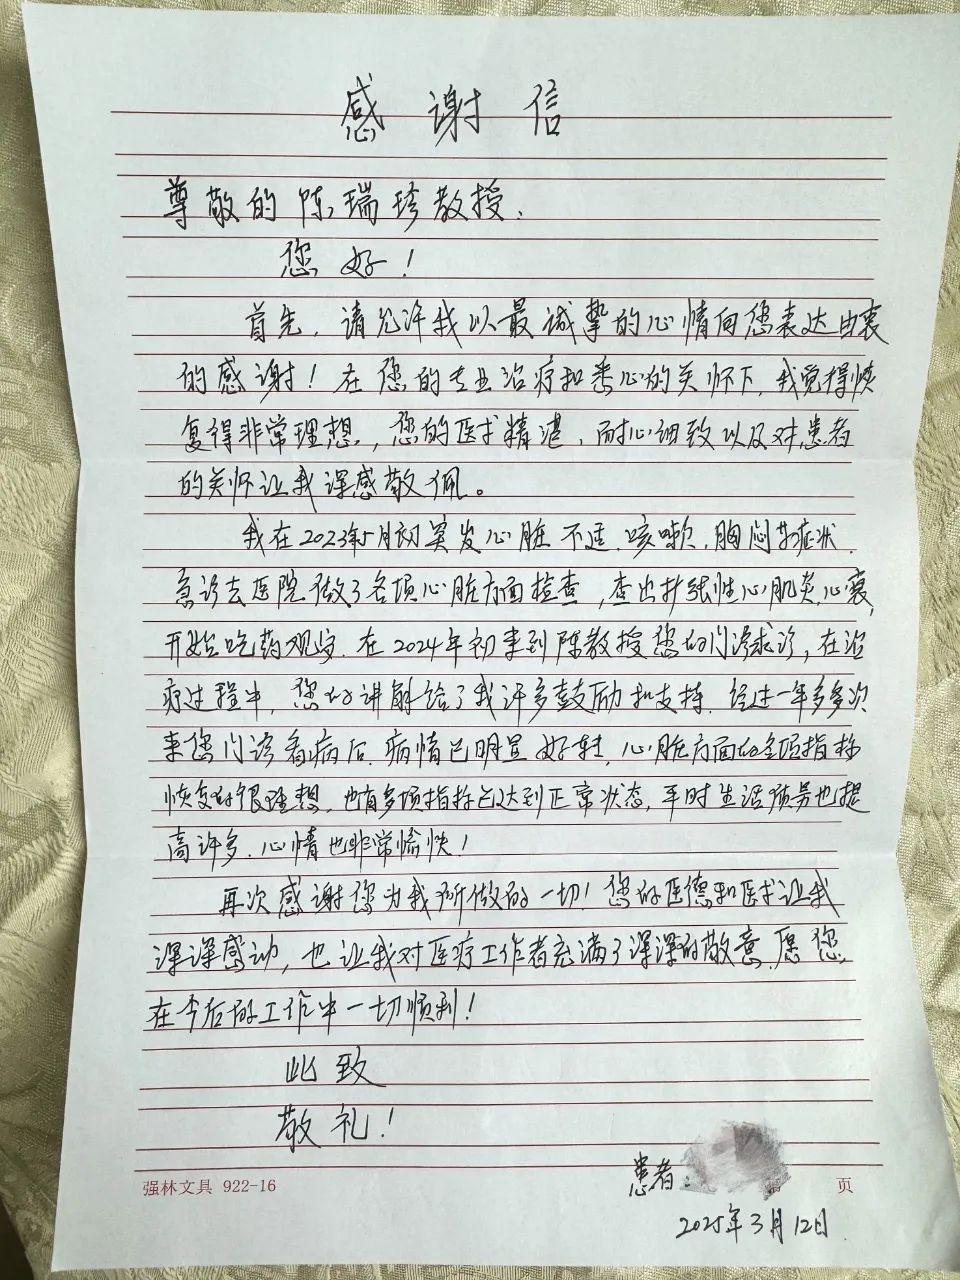 感谢信
尊敬的陈瑞珍教授：
您好！
首先，请允许我以最诚挚的心情向您表达由衷
的感谢！在您的专业治疗和悉心的关怀下，我觉得恢
复得非常理想，您的医术精湛，耐心细致以及对患者
的关怀让我深感敬佩。
我在2023年5月初突发心脏不适、咳嗽，胸闷等症状，
急诊去医院做了各项心脏方面检查，查出扩张性心肌炎，心衰，
开始吃药观察。在2024年初来到陈教授您的门诊求诊，在治
疗过程中，您的讲解给了我许多鼓励和支持。经过一年多多次
来您门诊看病后，病情已明显好转，心脏方面的各项指标
恢复的很理想，也有多项指标已达到正常状态，平时生活质量也提
高许多，心情也非常愉快！
再次感谢您为我所做的一切！您的医德和医术让我
深深感动，也让我对医疗工作者充满了深深的敬意，愿您
在今后的工作中一切顺利！
此致
敬礼！
患者：
强林文具 922-16 页
2025年3月12日